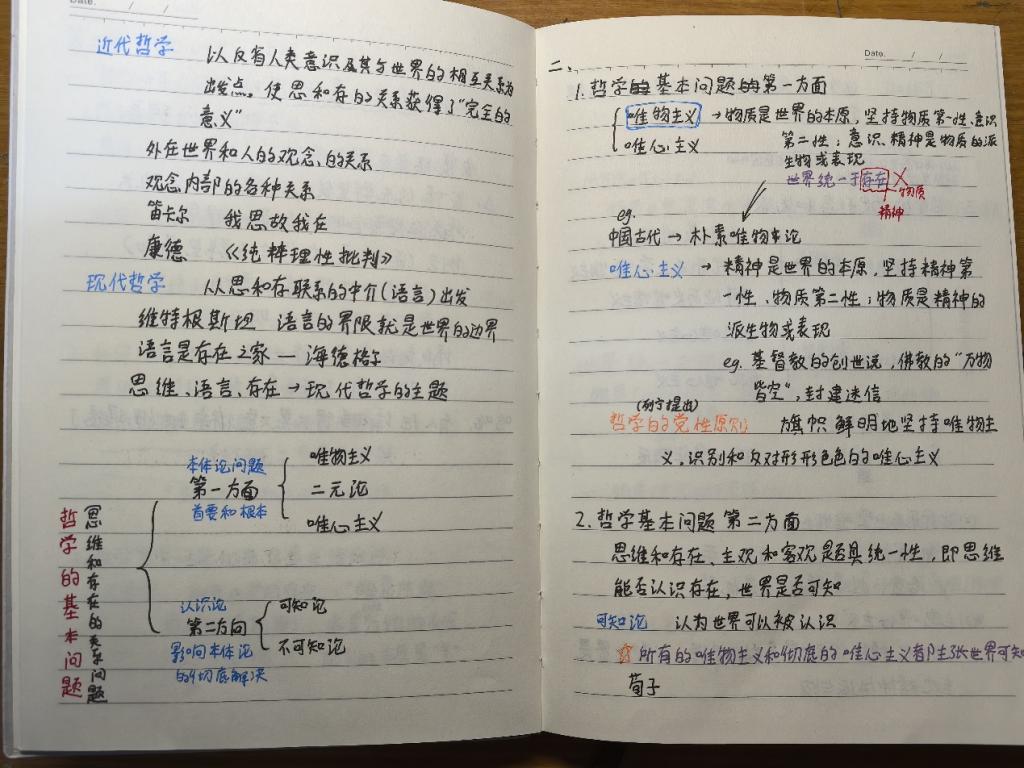 Date.
近代哲学 以反省人类意识及其与世界的相互关系为
出发点，使思和存的关系获得了“完全的
意义”
外在世界和人的观念、的关系
观念内部的各种关系
笛卡尔 我思故我在
康德 《纯粹理性批判》
现代哲学 从思和存联系的中介（语言）出发
维特根斯坦 语言的界限就是世界的边界
语言是存在之家 — 海德格尔
思维、语言、存在→现代哲学的主题
哲学的基本问题
思维和存在的关系问题
本体论问题
第一方面
首要和根本
唯物主义
二元论
唯心主义
认识论
第二方向
影响本体论
的彻底解决
可知论
不可知论
Date. / /
二、
1. 哲学的基本问题的第一方面
唯物主义 →物质是世界的本原，坚持物质第一性、意识
唯心主义 第二性；意识、精神是物质的派
生物或表现
世界统一于存在 X
物质
精神
eg.
中国古代→朴素唯物主论
唯心主义 → 精神是世界的本原，坚持精神第
一性、物质第二性；物质是精神的
派生物或表现
eg. 基督教的创世说，佛教的“万物
皆空”，封建迷信
（列宁提出）
哲学的党性原则 旗帜鲜明地坚持唯物主
义，识别和反对形形色色的唯心主义
2. 哲学基本问题第二方面
思维和存在、主观和客观是否具统一性，即思维
能否认识存在，世界是否可知
可知论 认为世界可以被认识
☆所有的唯物主义和彻底的唯心主义都主张世界可知
荀子